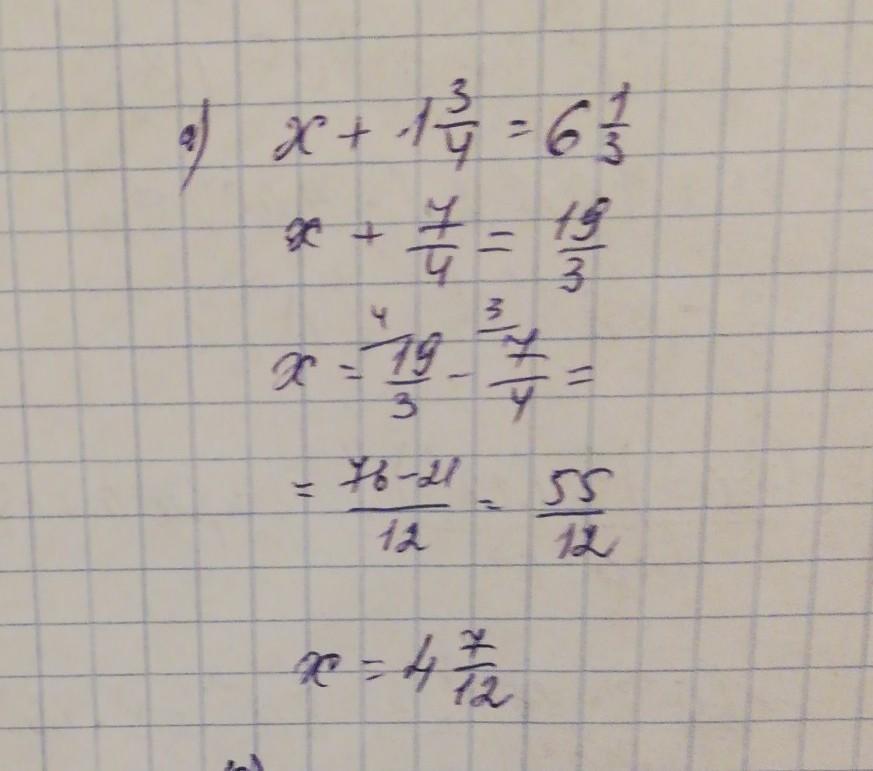 а) x + 1 3/4 = 6 1/3
x + 7/4 = 19/3
x = 4 19/3 - 3 7/4 =
= 76-21/12 = 55/12
x = 4 7/12